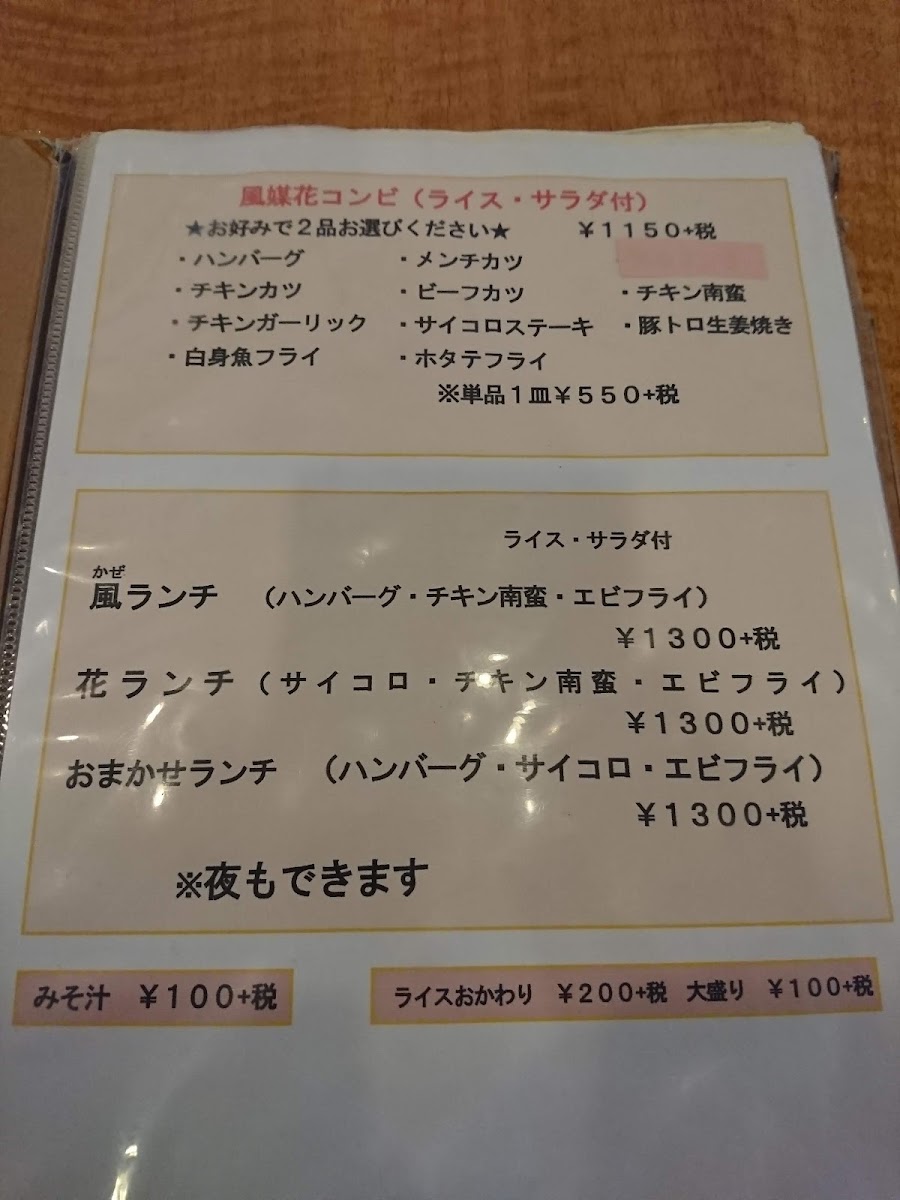 風媒花コンビ（ライス・サラダ付）
★お好みで２品お選びください★　￥１１５０+税
・ハンバーグ　・メンチカツ
・チキンカツ　・ビーフカツ　・チキン南蛮
・チキンガーリック　・サイコロステーキ　・豚トロ生姜焼き
・白身魚フライ　・ホタテフライ
※単品１皿￥５５０+税
ライス・サラダ付
かぜ
風ランチ　（ハンバーグ・チキン南蛮・エビフライ）
￥１３００+税
花ランチ（サイコロ・チキン南蛮・エビフライ）
￥１３００+税
おまかせランチ　（ハンバーグ・サイコロ・エビフライ）
￥１３００+税
※夜もできます
みそ汁　￥１００+税
ライスおかわり　￥２００+税　大盛り　￥１００+税